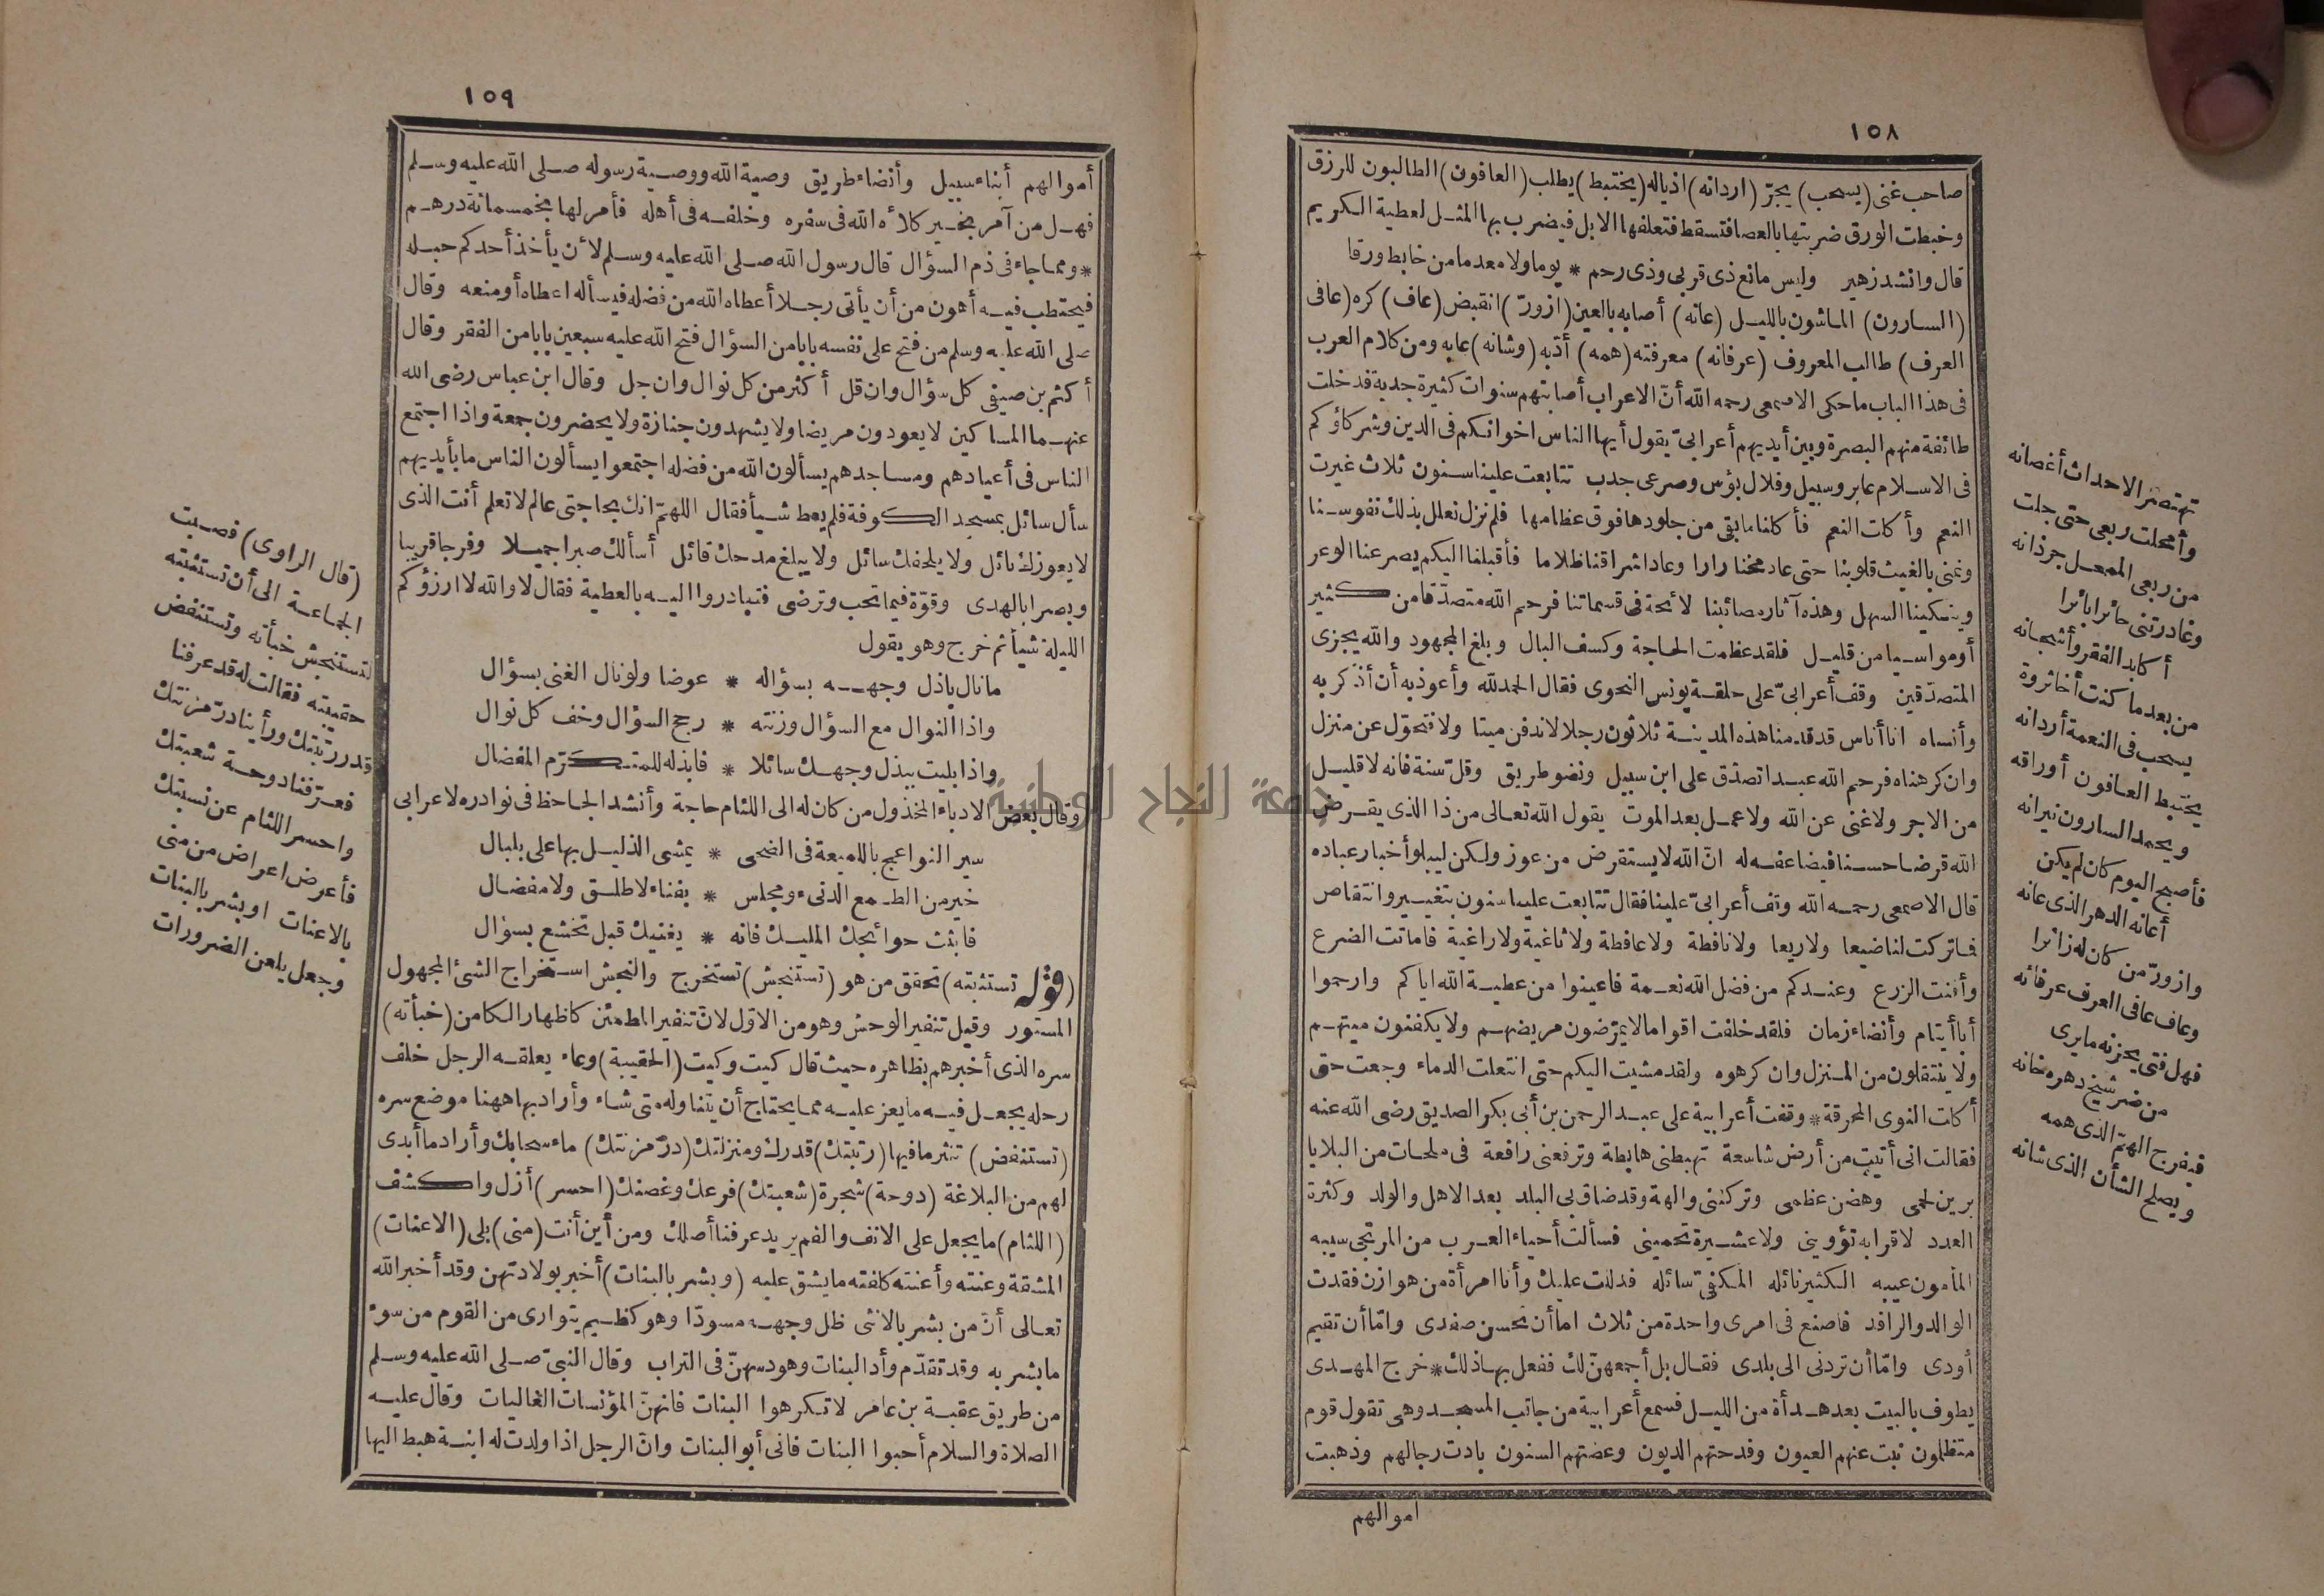 ١٥٨
صاحب غنى (يسحب) يجرّ (اردانه) اذياله (يختبط) يطلب (العافون) الطالبون للرزق
وخبطت الورق ضربتها بالعصا فتسقط فتعلفها الابل فيضرب بها المثل لعطية الكريم
قال وانشد زهير وليس مانع ذى قربى وذى رحم * يوما ولا معدما من خابط ورقا
(السارون) الماشون بالليل (عانه) أصابه بالعين (ازورّ) انقبض (عاف) كره (عافى
العرف) طالب المعروف (عرفانه) معرفته (همه) أذبه (وشانه) عابه ومن كلام العرب
فى هذا الباب ما حكى الاصمعى رحمه الله أنّ الاعراب أصابتهم سنوات كثيرة جدبة فدخلت
طائفة منهم البصرة وبين أيديهم أعرابىّ يقول أيها الناس اخوانكم فى الدين وشركاؤكم
فى الاسلام عابر وسبيل وفلال بؤس وصرعى جدب تتابعت علينا سنون ثلاث غيرت
النعم وأكات النعم فأكلنا ما بقى من جلودها فوق عظامها فلم نزل نعلل بذلك نفوسنا
ونمنى بالغيث قلوبنا حتى عاد مخنا رارا وعاد اشراقنا ظلاما فأقبلنا اليكم يصرعنا الوعر
وينكينا السهل وهذه آثار مصائبنا لائحة فى قسماتنا فرحم الله متصدّقا من كثير
أومواسيا من قليل فلقد عظمت الحاجة وكسف البال وبلغ المجهود والله يجزى
المتصدّقين وقف أعرابىّ على حلقة يونس النحوى فقال الحمد لله وأعوذ به أن أذكر به
وأنساه انا أناس قدمنا هذه المدينة ثلاثون رجلا لا ندفن ميتا ولا نتحوّل عن منزل
وان كرهناه فرحم الله عبدا تصدّق على ابن سبيل ونضو طريق وقلّ سنة فانه لا قليل
من الاجر ولا غنى عن الله ولا عمل بعد الموت يقول الله تعالى من ذا الذى يقرض
الله قرضا حسنا فيضاعفه له انّ الله لا يستقرض من عوز ولكن ليبلو أخبار عباده
قال الاصمعى رحمه الله وقف أعرابىّ علينا فقال تتابعت علينا سنون بتغيير وانتقاص
فما تركت لنا ضيعا ولا ربعا ولا نافطة ولا عافطة ولا ثاغية ولا راغية فاماتت الضرع
وأفنت الزرع وعندكم من فضل الله نعمة فاعينوا من عطية الله اياكم وارحموا
أبا أيتام وأنضاء زمان فلقد خلفت اقواما لا يمرّضون مريضهم ولا يكفنون ميتهم
ولا ينتقلون من المنزل وان كرهوه ولقد مشيت اليكم حتى انتعلت الدماء وجعت حتى
أكات النوى المحرقة * وقفت أعرابية على عبد الرحمن بن أبى بكر الصديق رضى الله عنه
فقالت انى أتيت من أرض شاسعة تهبطنى هابطة وترفعنى رافعة فى ملحات من البلايا
برين لحمى وهضن عظمى وتركننى والهة وقد ضاق بى البلد بعد الاهل والولد وكثرة
العدد لا قرابه تؤوينى ولا عشيرة تحمينى فسألت أحياء العرب من المرتجى سيبه
المأمون عيبه الكثير نائله المكفىّ سائله فدللت عليك وأنا امرأة من هوازن فقدت
الوالد والرافد فاصنع فى امرى واحدة من ثلاث اما أن تحسن صفدى وامّا أن تقيم
أودى وامّا أن تردنى الى بلدى فقال بل أجمعهنّ لك ففعل بها ذلك * خرج المهدى
يطوف بالبيت بعد هدأة من الليل فسمع أعرابية من جانب المسجد وهى تقول قوم
متظلمون نبت عنهم العيون وفدحتهم الديون وعضتهم السنون بادت رجالهم وذهبت
اموالهم
تهتصر الاحداث أغصانه
وأمحلت ربعى حتى جلت
من ربعى الممحل جرذانه
وغادرتنى حائرا بائرا
أكابد الفقر وأشجانه
من بعد ما كنت أخاثروة
يسحب فى النعمة أردانه
يختبط العافون أوراقه
ويحمد السارون نيرانه
فأصبح اليوم كان لم يكن
أعانه الدهر الذى عانه
وازورّ من كان له زائرا
وعاف عافى العرف عرفانه
فهل فتى يحزنه ما يرى
من ضر شيخ دهره خانه
فيفرج الهمّ الذى همه
ويصلح الشأن الذى شانه
١٥٩
أموالهم أبناء سبيل وأنضاء طريق وصية الله ووصية رسوله صلى الله عليه وسلم
فهل من آمر بخير كلأه الله فى سفره وخلفه فى أهله فأمر لها بخمسمائة درهم
* ومما جاء فى ذم السؤال قال رسول الله صلى الله عليه وسلم لأن يأخذ أحدكم حبله
فيحتطب فيه أهون من أن يأتى رجلا أعطاه الله من فضله فيسأله اعطاه أو منعه وقال
صلى الله عليه وسلم من فتح على نفسه بابا من السؤال فتح الله عليه سبعين بابا من الفقر وقال
أكثم بن صيفى كل سؤال وان قل أكثر من كل نوال وان جل وقال ابن عباس رضى الله
عنهما المساكين لا يعودون مريضا ولا يشهدون جنازة ولا يحضرون جمعة واذا اجتمع
الناس فى أعيادهم ومساجدهم يسألون الله من فضله اجتمعوا يسألون الناس ما بأيديهم
سأل سائل بمسجد الكوفة فلم يعط شيأ فقال اللهمّ انك بحاجتى عالم لا تعلم أنت الذى
لا يعوزك نائل ولا يلحفك سائل ولا يبلغ مدحك قائل أسألك صبرا جميلا وفرجا قريبا
وبصرا بالهدى وقوّة فيما تحب وترضى فتبادروا اليه بالعطية فقال لا والله لا ارزؤكم
الليلة شيأ ثم خرج وهو يقول
ما نال باذل وجهه بسؤاله * عوضا ولو نال الغنى بسؤال
واذا النوال مع السؤال وزنته * رجح السؤال وخف كل نوال
واذا بليت ببذل وجهك سائلا * فابذله للمتكرّم المفضال
وقال بعض الادباء المخذول من كان له الى اللئام حاجة وأنشد الجاحظ فى نوادره لاعرابى
سير النواعج باللاميعة فى الضحى * يمشى الذليل بها على بلبال
خير من الطمع الدنىء ومجلس * بفناء لا طلق ولا مفضال
فابثث حوائجك المليك فانه * يغنيك قبل تخشع بسؤال
(قوله تستثبته) تحقق من هو (تستنجش) تستخرج والنجش استخراج الشئ المجهول
المستور وقيل تنفير الوحش وهو من الاوّل لانّ تنفير المطمئن كاظهار الكامن (خبأته)
سره الذى أخبرهم بظاهره حيث قال كيت وكيت (الحقيبة) وعاء يعلقه الرجل خلف
رحله يجعل فيه ما يعز عليه مما يحتاج أن يتناوله متى شاء وأراد بها ههنا موضع سره
(تستنفض) تنثر ما فيها (رتبتك) قدرك ومنزلتك (درّ مزنتك) ماء سحابك وأراد ما أبدى
لهم من البلاغة (دوحة) شجرة (شعبتك) فرعك وغصنك (احسر) أزل واكشف
(اللثام) ما يجعل على الانف والفم يريد عرفنا أصلك ومن أين أنت (منى) بلى (الاعنات)
المشقة وعنته وأعنته كافته ما يشق عليه (وبشر بالبنات) أخبر بولادتهن وقد أخبر الله
تعالى أنّ من بشر بالانثى ظل وجهه مسودّا وهو كظيم يتوارى من القوم من سوء
ما بشر به وقد تقدّم وأد البنات وهو دسهنّ فى التراب وقال النبىّ صلى الله عليه وسلم
من طريق عقبة بن عامر لا تكرهوا البنات فانهنّ المؤنسات الغاليات وقال عليه
الصلاة والسلام أحبوا البنات فانى أبو البنات وانّ الرجل اذا ولدت له ابنة هبط اليها
(قال الراوى) فصبت
الجماعة الى أن تستثبته
لتستنجش خبأته وتستنفض
حقيبته فقالت له قد عرفنا
قدر رتبتك ورأينا درّ مزنتك
فعرّفنا دوحة شعبتك
واحسر اللثام عن نسبتك
فأعرض اعراض من منى
بالاعنات او بشر بالبنات
وجعل يلعن الضرورات
جامعة النجاح الوطنية